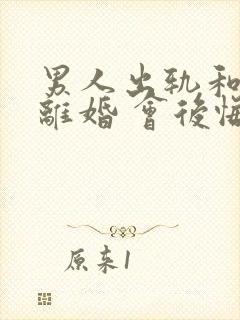 男人出轨和
離婚會後悔
原来1